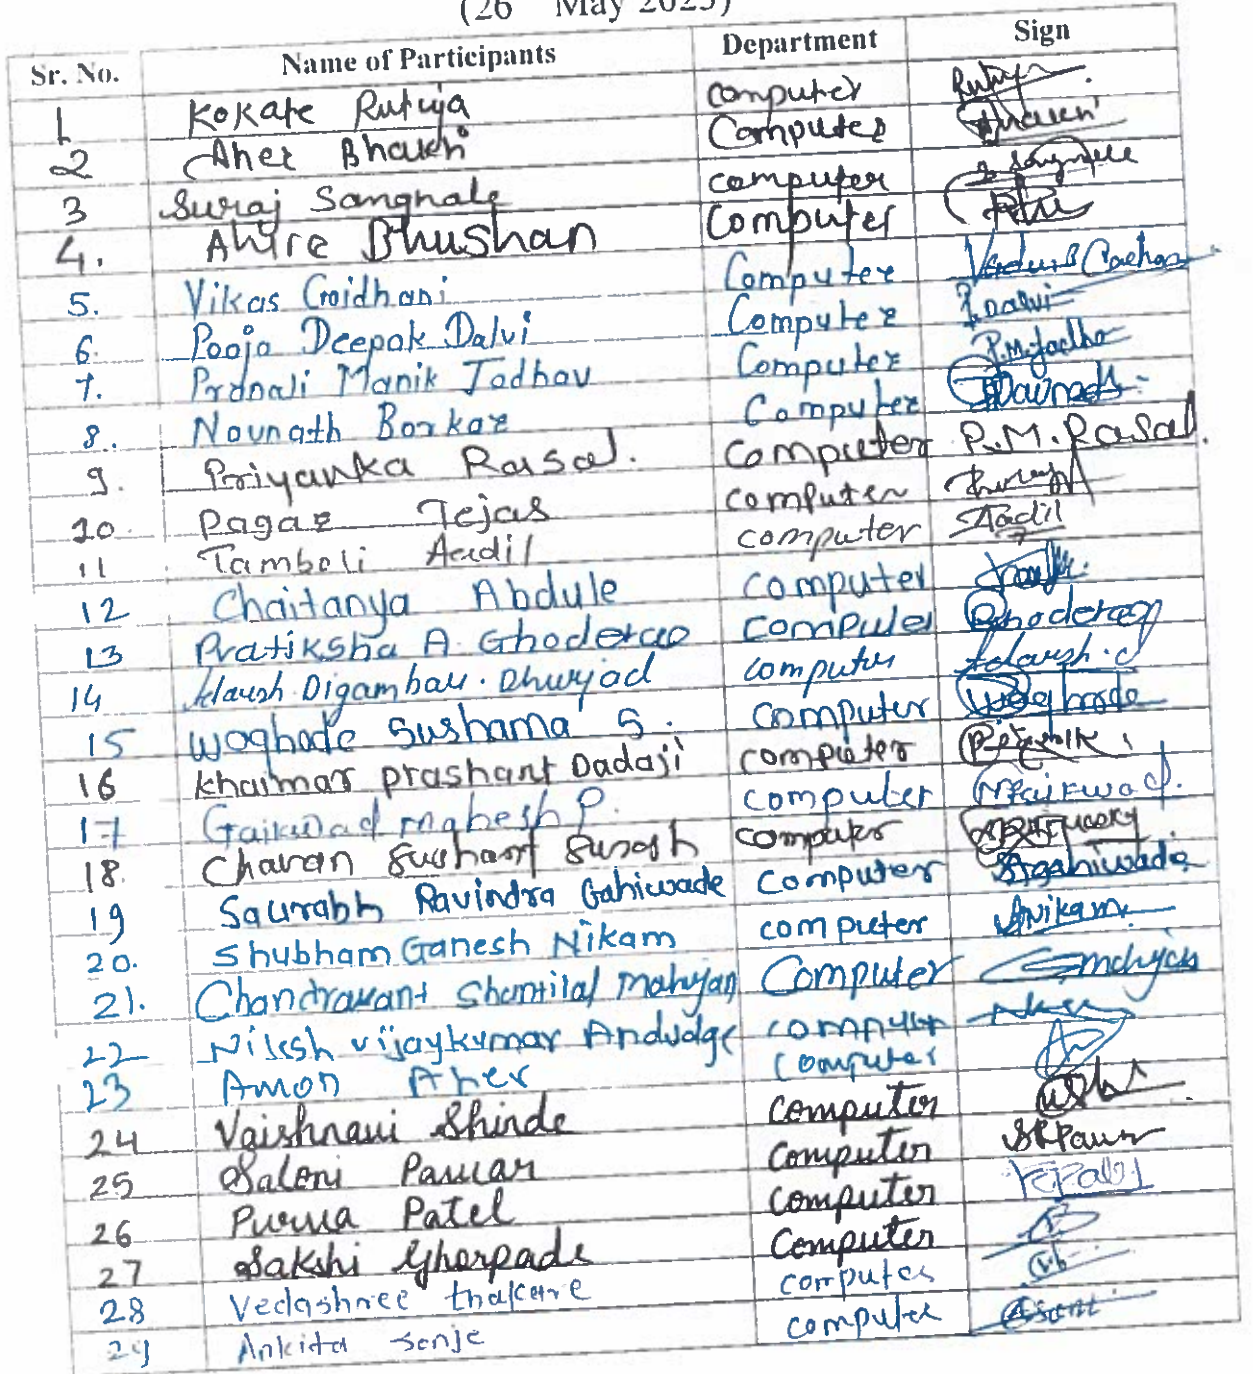 (26 May 2023)
Sr. No. Name of Participants Department Sign
1 Kokate Rutuja computer
2 Aher Bhakti Computer
3 Suraj Sanghale computer
4. Ahire Bhushan Computer
5. Vikas Gaidhani Computer
6. Pooja Deepak Dalvi Computer
7. Pranali Manik Jadhav Computer P.M.Jadhav
8. Navnath Borkar Computer
9. Priyanka Rasal. Computer P.M.Rasal.
10. Pagar Tejas computer
11 Tamboli Aadil computer Aadil
12 Chaitanya Abdule computer
13 Pratiksha A. Ghoderao computer Ghoderao
14 Adarsh.Digambar.Dhurjad computer Adarsh.d
15 Waghade Sushama S. computer
16 khairnar prashant Dadaji computer
17 Gaikwad mahesh P. computer Gaikwad.
18. Chavan Sushant Suresh computer
19 Saurabh Ravindra Gahiwade computer Gahiwade
20. Shubham Ganesh Nikam computer Nikam
21. Chandrakant Shantilal Mahajan Computer
22 Nilesh vijaykumar Andudge computer
23 Aman Aher computer
24 Vaishnavi Shinde Computer
25 Saloni Pawar Computer SRPawar
26 Purva Patel Computer
27 Sakshi Ghorpade Computer
28 Vedashree thakare computer
29 Ankita Sonje computer